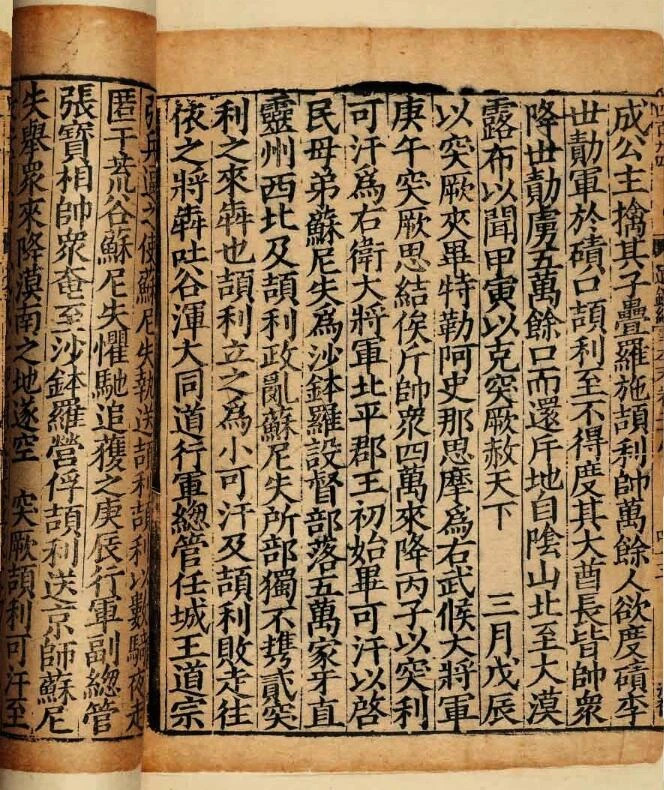 成公主擒其子疊羅施頡利帥萬餘人欲度磧李
世勣軍於磧口頡利至不得度其大酋長皆帥衆
降世勣虜五萬餘口而還斥地自陰山北至大漠
露布以聞甲寅以克突厥赦天下　三月戊辰
以突厥夾畢特勒阿史那思摩爲右武候大將軍
庚午突厥思結俟斤帥衆四萬來降丙子以突利
可汗爲右衛大將軍北平郡王初始畢可汗以啓
民母弟蘇尼失爲沙鉢羅設督部落五萬家牙直
靈州西北及頡利政亂蘇尼失所部獨不㩗貳突
利之來犇也頡利立之爲小可汗及頡利敗走往
依之將犇吐谷渾大同道行軍總管任城王道宗
之使蘇尼失執送頡利頡利以數騎夜走
匿于荒谷蘇尼失懼馳追獲之庚辰行軍副總管
張寶相帥衆奄至沙鉢羅營俘頡利送京師蘇尼
失舉衆來降漠南之地遂空　突厥頡利可汗至